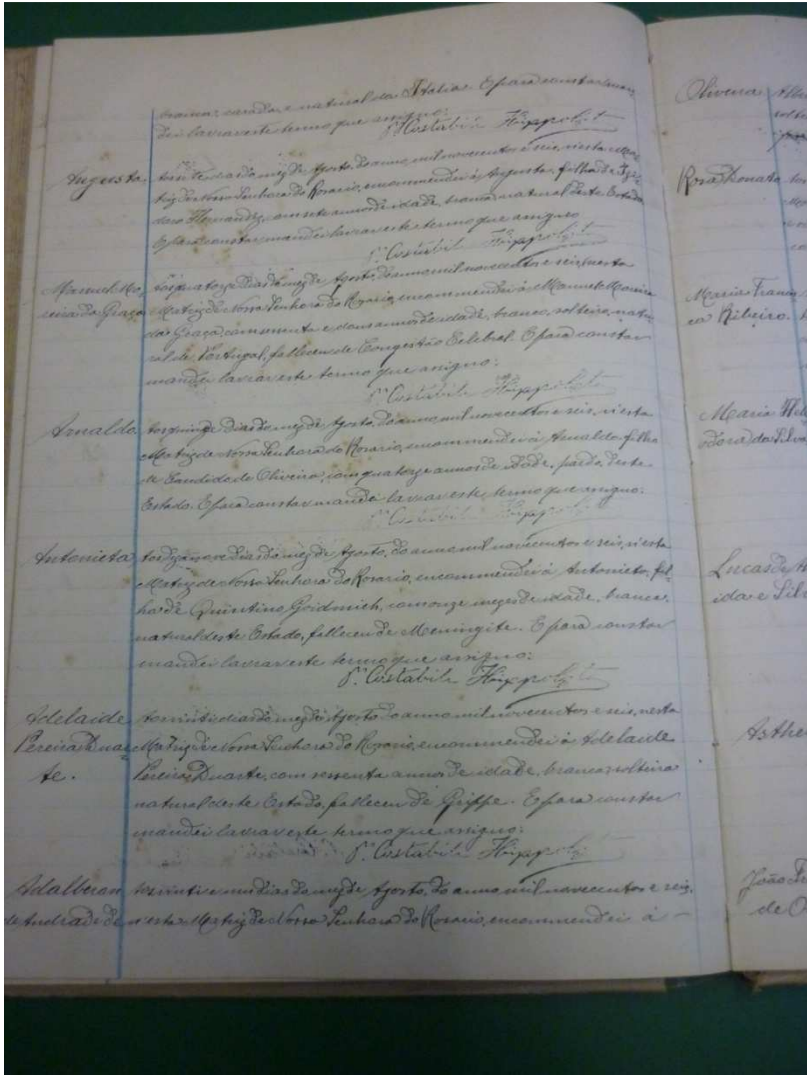 branca, casada, e natural da Italia. E para constar man
dei lavrar este termo que assigno:
P. Costabile Hippolito
Augusta. Aos vinte dias do mez de Agosto, do anno mil novecentos e seis, nesta Ma
triz de Nossa Senhora do Rosario, encommendei á Augusta, filha de
Hernandes, com sete annos de idade, branca, natural deste Estado
E para constar mandei lavrar este termo que assigno
P. Costabile Hippolito
Manuel Mo Aos quatorze dias do mez de Agosto, do anno mil novecentos e seis, nesta
reira da Graça Matriz de Nossa Senhora do Rosario, encommendei á Manuel Moreira
da Graça, com sessenta e dous annos de idade, branco, solteiro, natu
ral de Portugal, falleceu de Congestão Celebral. E para constar
mandei lavrar este termo que assigno:
P. Costabile Hippolito
Arnaldo Aos quinze dias do mez de Agosto, do anno mil novecentos e seis, n'esta
Matriz de Nossa Senhora do Rosario, encommendei á Arnaldo, filho
de Candido de Oliveira, com quatorze annos de idade, pardo, deste
Estado. E para constar mandei lavrar este termo que assigno:
P. Costabile Hippolito
Antonieta Aos dezenove dias do mez de Agosto, do anno mil novecentos e seis, n'esta
Matriz de Nossa Senhora do Rosario, encommendei á Antonieta, fi
lha de Quintino, com onze mezes de idade, branca,
natural deste Estado, falleceu de Meningite. E para constar
mandei lavrar este termo que assigno:
P. Costabile Hippolito
Adelaide Aos vinte dias do mez de Agosto do anno mil novecentos e seis, nesta
Pereira Duar Matriz de Nossa Senhora do Rosario, encommendei á Adelaide
te. Pereira Duarte, com sessenta annos de idade, branca, solteira
natural deste Estado, falleceu de Grippe. E para constar
mandei lavrar este termo que assigno:
P. Costabile Hippolito
Aos vinte e um dias do mez de Agosto, do anno mil novecentos e seis,
de Andrade n'esta Matriz de Nossa Senhora do Rosario, encommendei á -
Oliveira
Rosa Donata
Maria Francis
ca Ribeiro.
Maria
da Silva
Lucas de
ida e Silv
João
de O